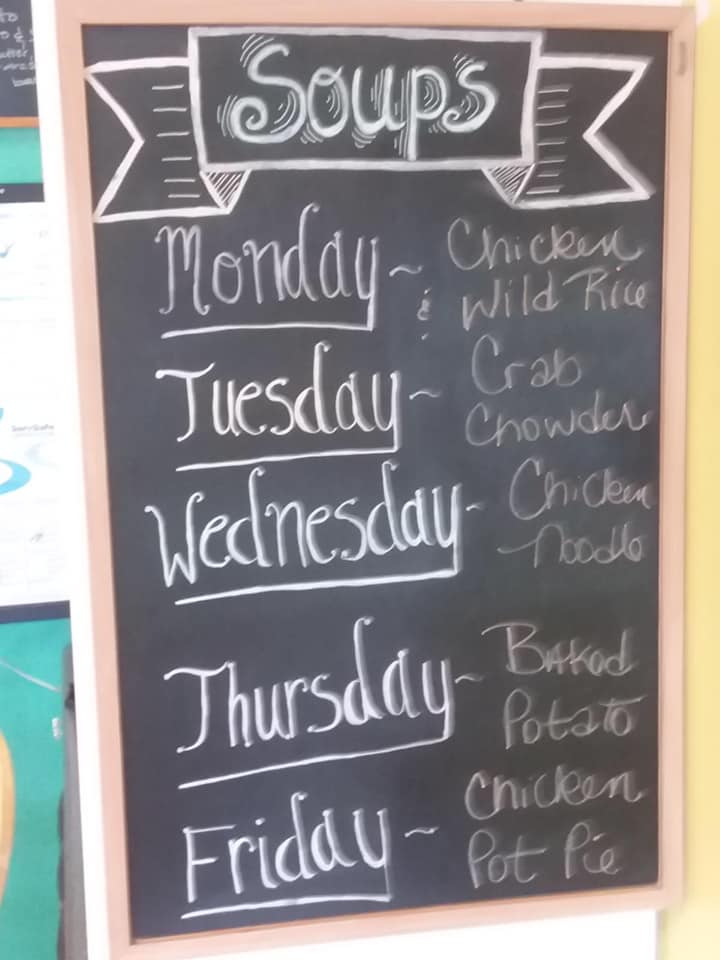 Soups
Monday ~ Chicken
& Wild Rice
Tuesday ~ Crab
Chowder
Wednesday - Chicken
Noodle
Thursday ~ Baked
Potato
Friday ~ Chicken
Pot Pie